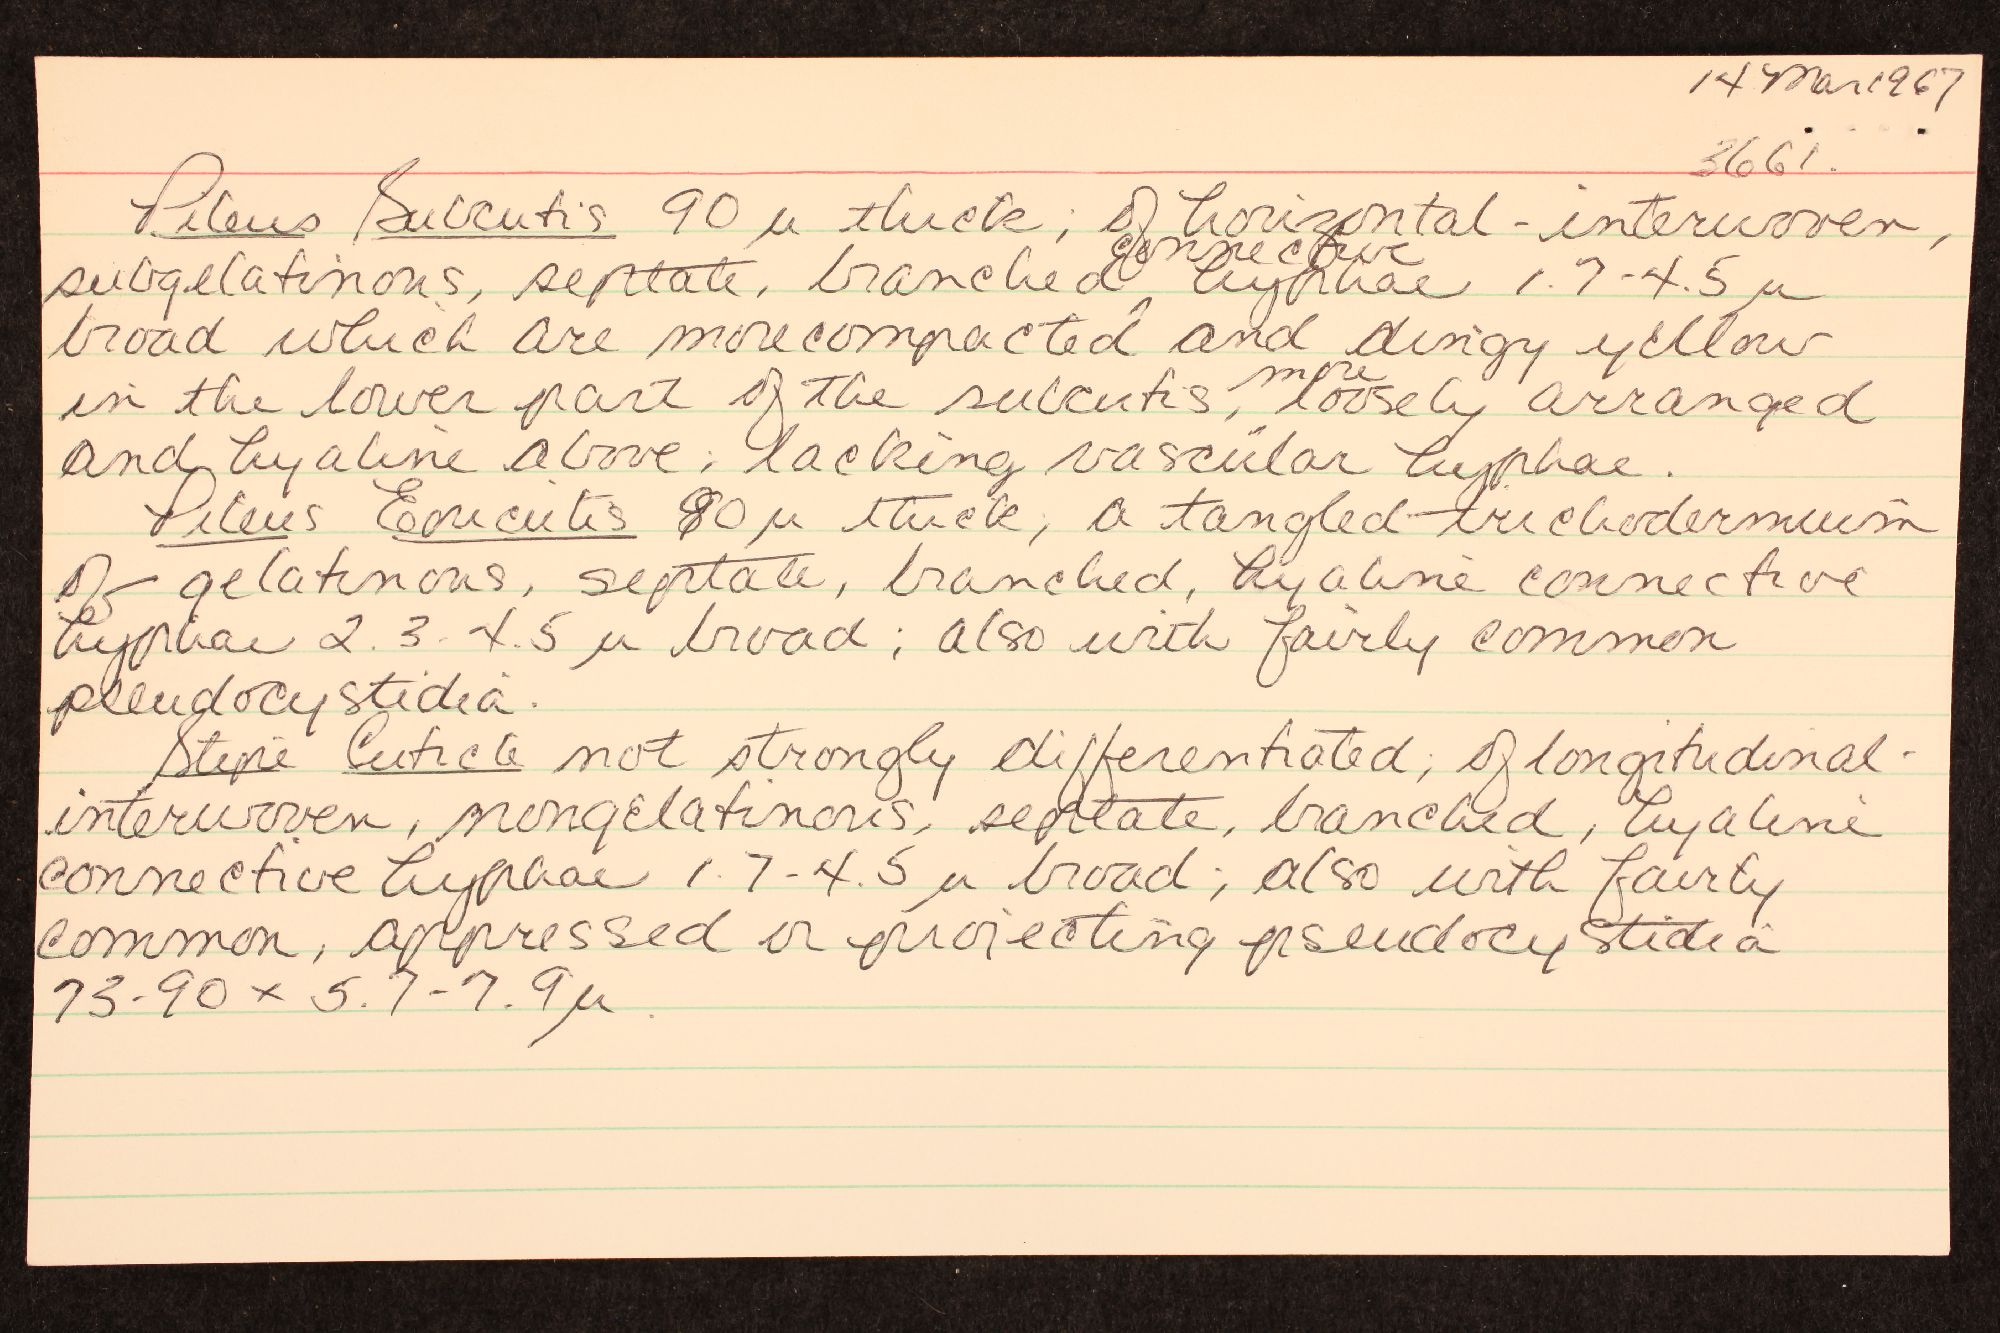 14 Mar 1967
3661.
Pileus Subcutis 90 µ thick; of horizontal-interwoven,
subgelatinous, septate, branched connective hyphae 1.7-4.5 µ
broad which are more compacted and dingy yellow
in the lower part of the subcutis, more loosely arranged
and hyaline above; lacking vascular hyphae.
Pileus Epicutis 80 µ thick; a tangled trichodermium
of gelatinous, septate, branched, hyaline connective
hyphae 2.3-4.5 µ broad; also with fairly common
pseudocystidia.
Stipe Cuticle not strongly differentiated; of longitudinal-
interwoven, nongelatinous, septate, branched, hyaline
connective hyphae 1.7-4.5 µ broad; also with fairly
common, appressed or projecting pseudocystidia
73-90 x 5.7-7.9 µ.